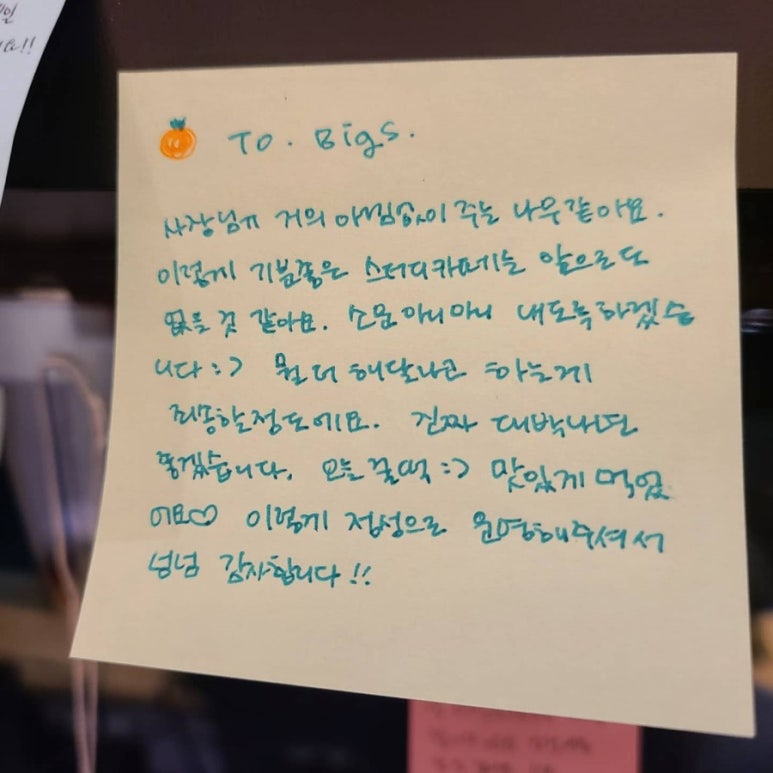 일
요!!
To. Bigs.
사장님ㅠ 거의 아낌없이 주는 나무같아요.
이렇게 기분좋은 스터디카페는 앞으로도
없을 것 같아요. 소문 마니마니 내도록하겠습
니다 :-) 뭘 더 해달라고 하는게
죄송할정도에요. 진짜 대박나면
좋겠습니다. 오늘 꿀떡 :-) 맛있게 먹었
어요♡ 이렇게 정성으로 운영해주셔서
넘넘 감사합니다!!